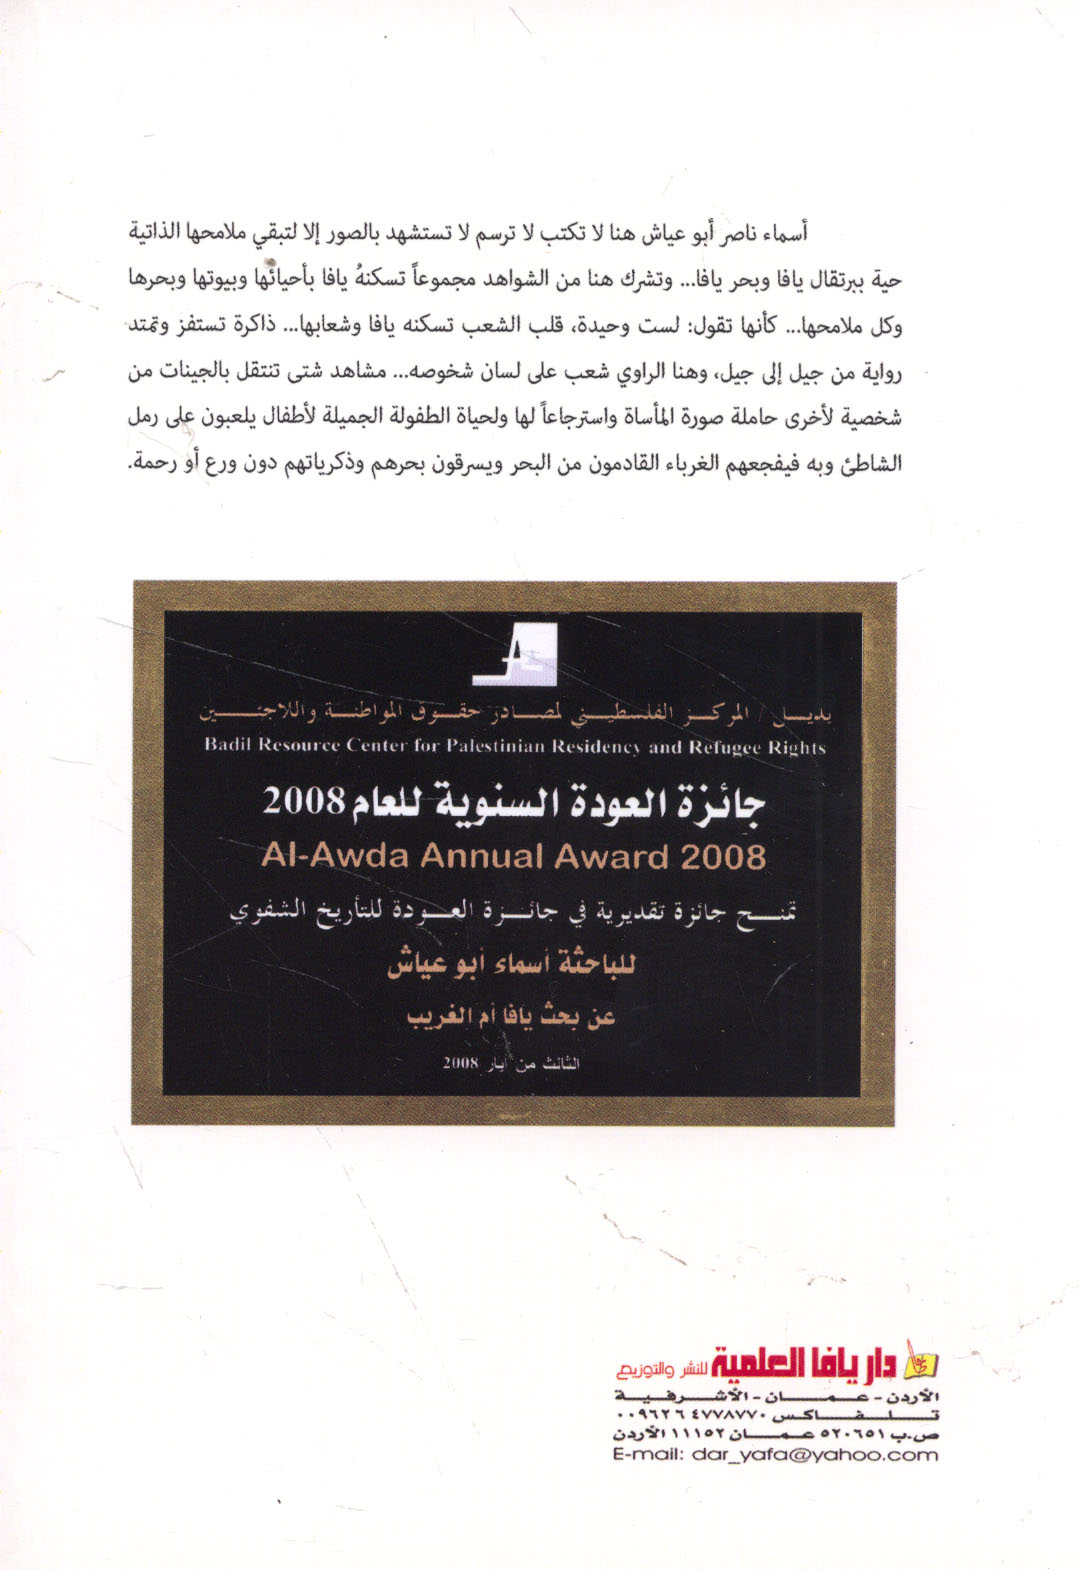 أسماء ناصر أبو عياش هنا لا تكتب لا ترسم لا تستشهد بالصور إلا لتبقي ملامحها الذاتية
حية ببرتقال يافا وبحر يافا... وتشرك هنا من الشواهد مجموعاً تسكنهُ يافا بأحيائها وبيوتها وبحرها
وكل ملامحها... كأنها تقول: لست وحيدة، قلب الشعب تسكنه يافا وشعابها... ذاكرة تستفز وتمتد
رواية من جيل إلى جيل، وهنا الراوي شعب على لسان شخوصه... مشاهد شتى تنتقل بالجينات من
شخصية لأخرى حاملة صورة المأساة واسترجاعاً لها ولحياة الطفولة الجميلة لأطفال يلعبون على رمل
الشاطئ وبه فيفجعهم الغرباء القادمون من البحر ويسرقون بحرهم وذكرياتهم دون ورع أو رحمة.
بديل / المركز الفلسطيني لمصادر حقوق المواطنة واللاجئين
Badil Resource Center for Palestinian Residency and Refugee Rights
جائزة العودة السنوية للعام 2008
Al-Awda Annual Award 2008
تمنح جائزة تقديرية في جائزة العودة للتأريخ الشفوي
للباحثة أسماء أبو عياش
عن بحث يافا أم الغريب
الثالث من أيار 2008
دار يافا العلمية للنشر والتوزيع
الأردن - عمان - الأشرفية
تلفاكس ٠٠٩٦٢٦ ٤٧٧٨٧٧٠
ص.ب ٥٢٠٦٥١ عمان ١١١٥٢ الأردن
E-mail: dar_yafa@yahoo.com